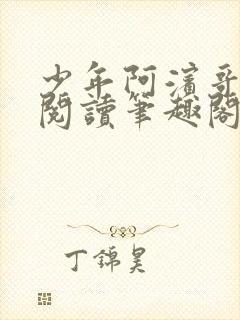 少年阿濱哥
閱讀筆趣閣
丁錦昊